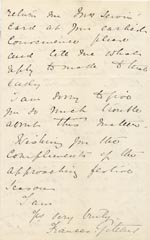 return me Mrs
card at your earliest
convenience please
and let me what
reply to made to the
lady
I am sorry to give
you so much trouble
about this matter
Wishing you the
Compliments of the
approaching festive
Season
I am
Yrs very truly
Frances